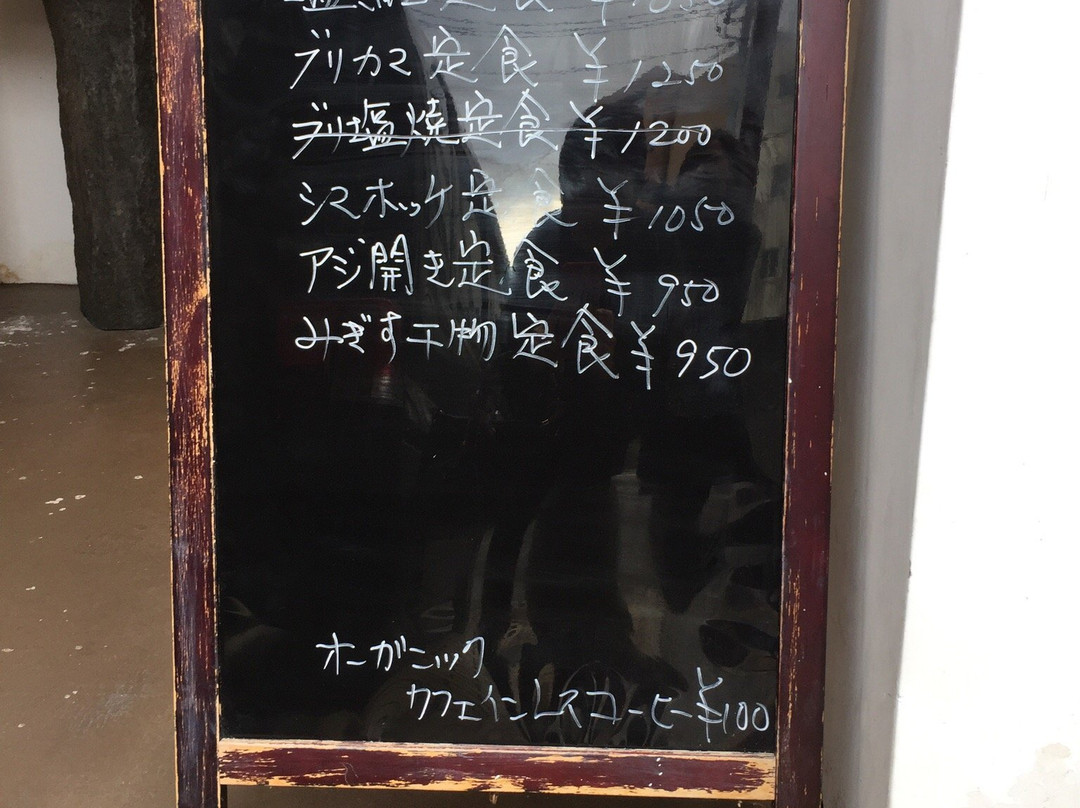 定食 ¥1050
ブリカマ定食 ¥1250
ブリ塩焼定食 ¥1200
シマホッケ定食 ¥1050
アジ開き定食 ¥950
みぎす干物定食 ¥950
オーガニック
カフェインレスコーヒー ¥100